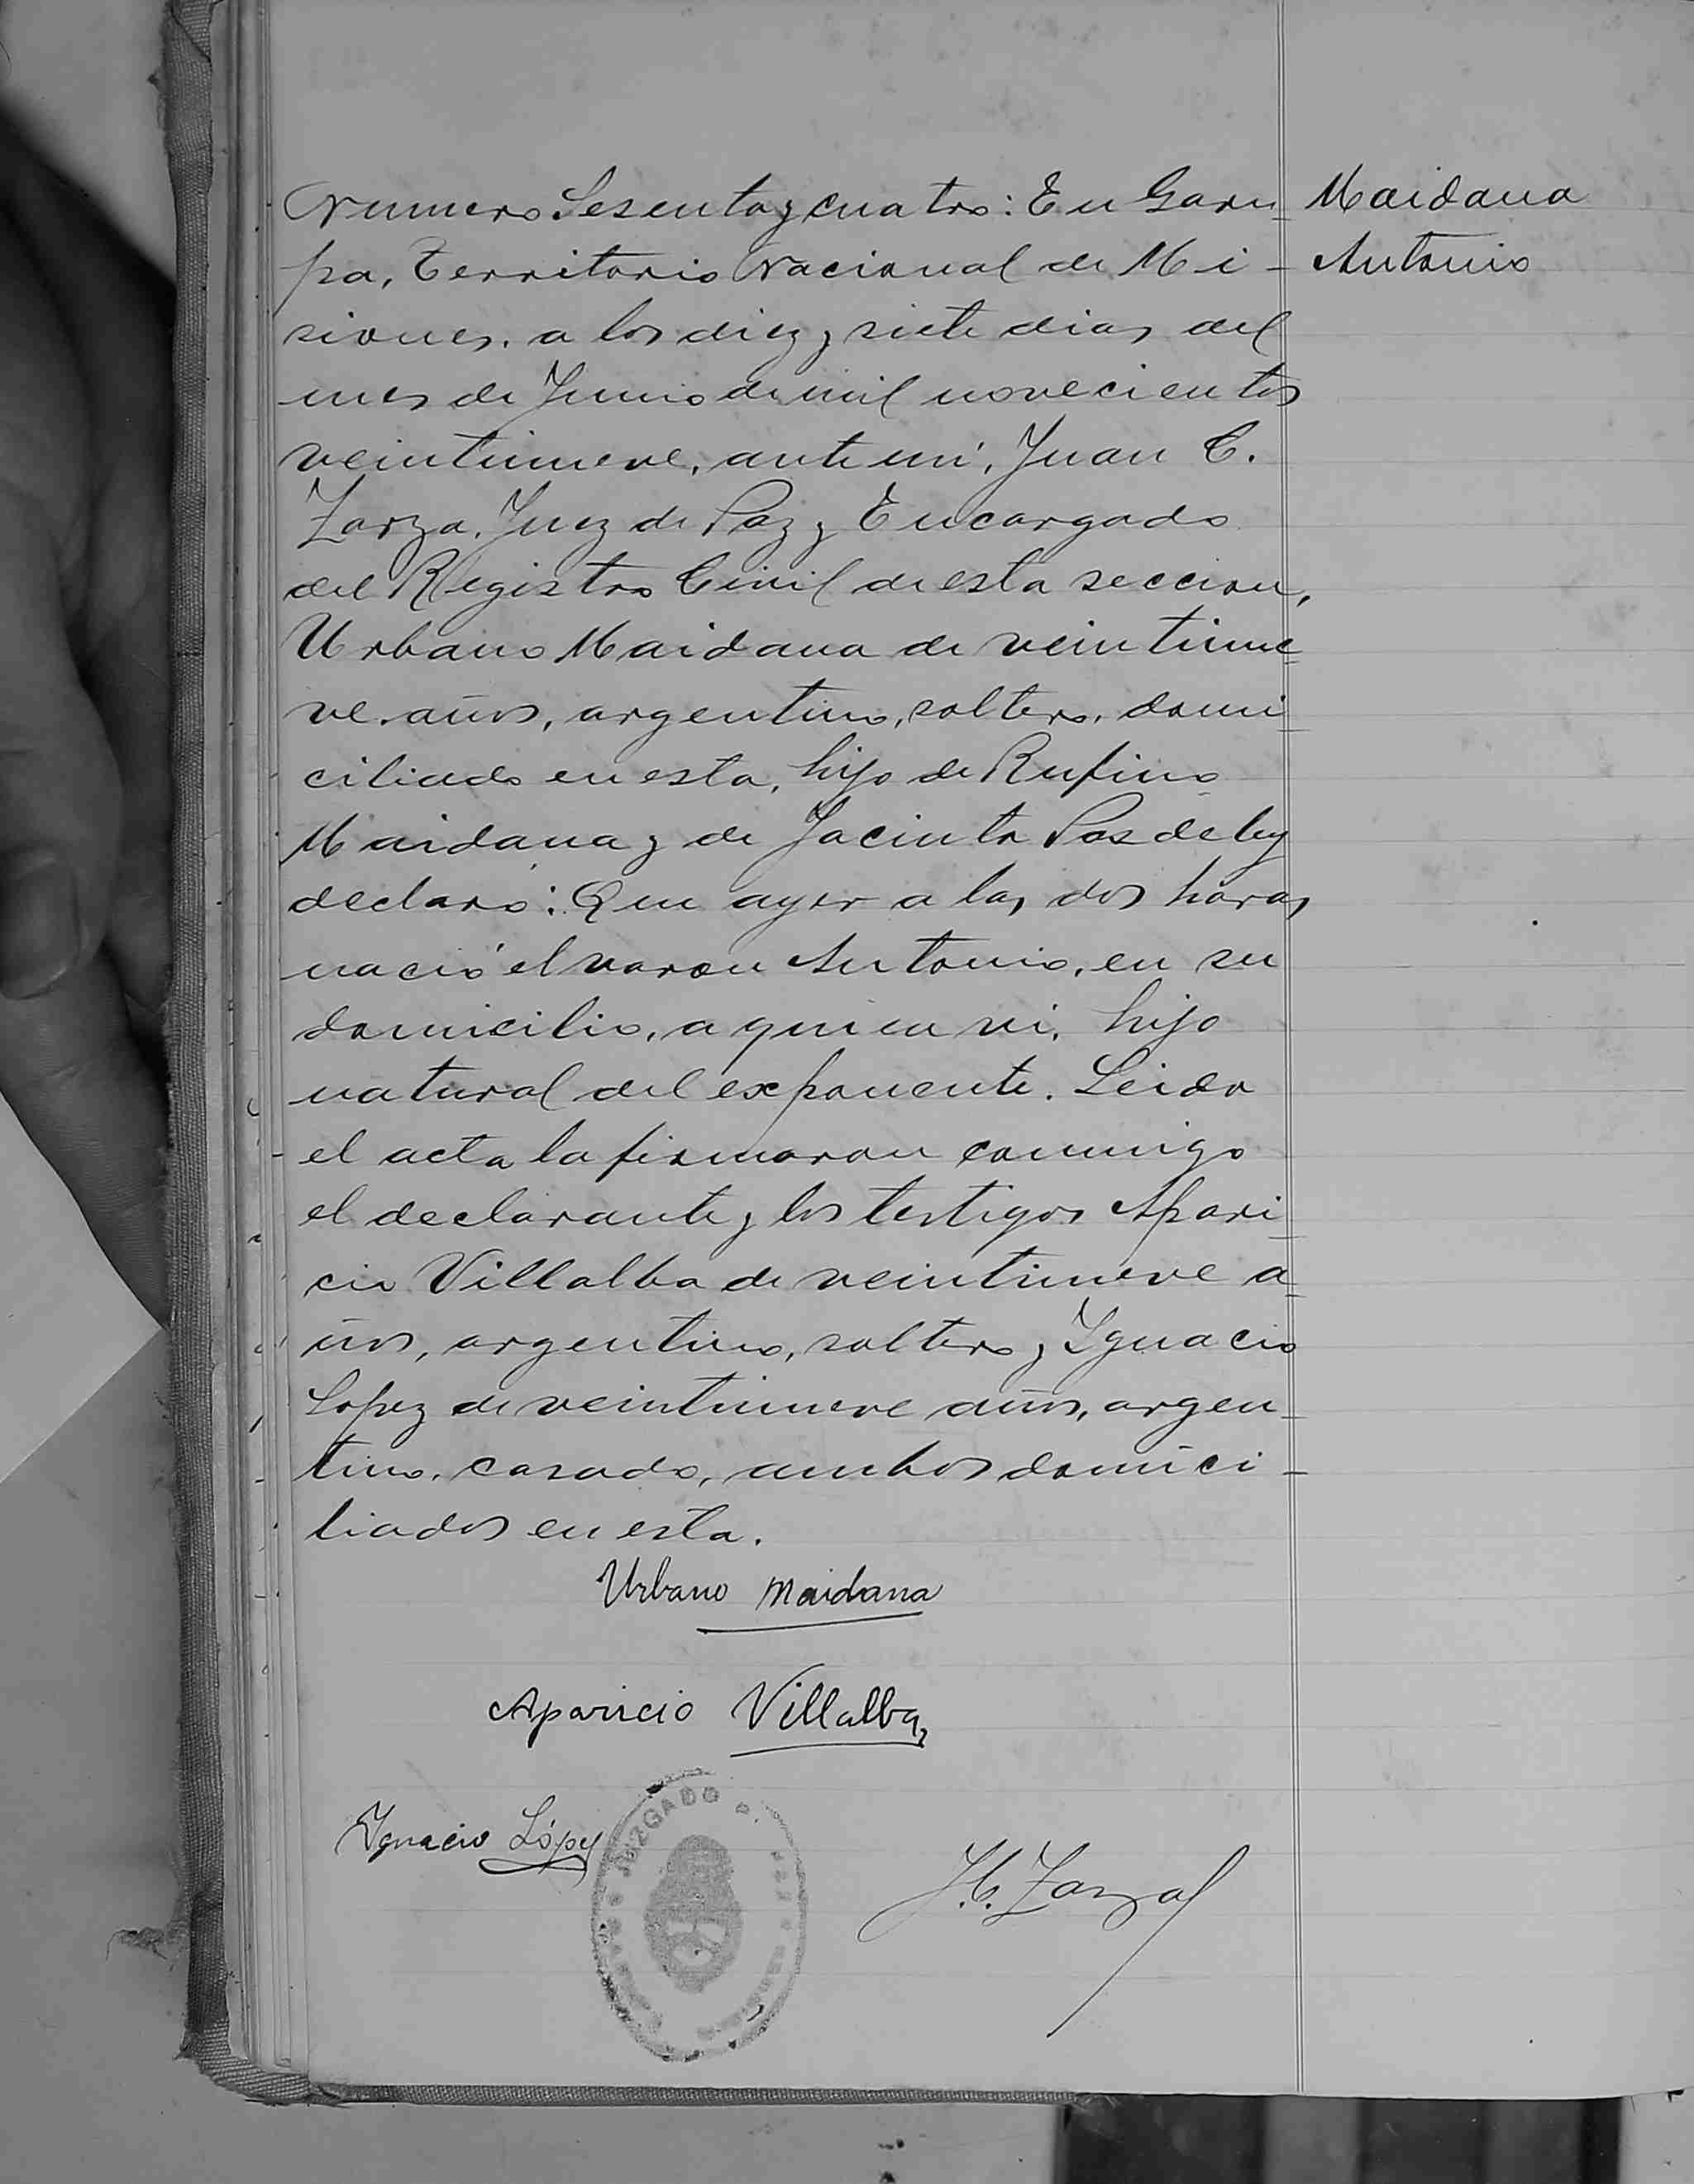 Numero Sesenta y cuatro: En Garu
pa, Territorio Nacional de Mi-
siones, a los diez y siete dias del
mes de Junio de mil novecientos
veintinueve, ante mi, Juan C.
Zarza, Juez de Paz y Encargado
del Registro Civil de esta seccion,
Urbano Maidana de veintinue
ve años, argentino, soltero, domi
ciliado en esta, hijo de Rufino
Maidana y de Jacinta
declaró: Que ayer a las dos horas
nació el varon Antonio, en su
domicilio, a quien vi, hijo
natural del exponente. Leida
el acta la firmaron conmigo
el declarante y los testigos Apari
cio Villalba de veintinueve a
ños, argentino, soltero y Ignacio
Lopez de veintinueve años, argen
tino, casado, ambos domici-
liados en esta.
Maidana
Antonio
Urbano Maidana
Aparicio Villalba
Ignacio López
J.C. Zarza
JUZGADO